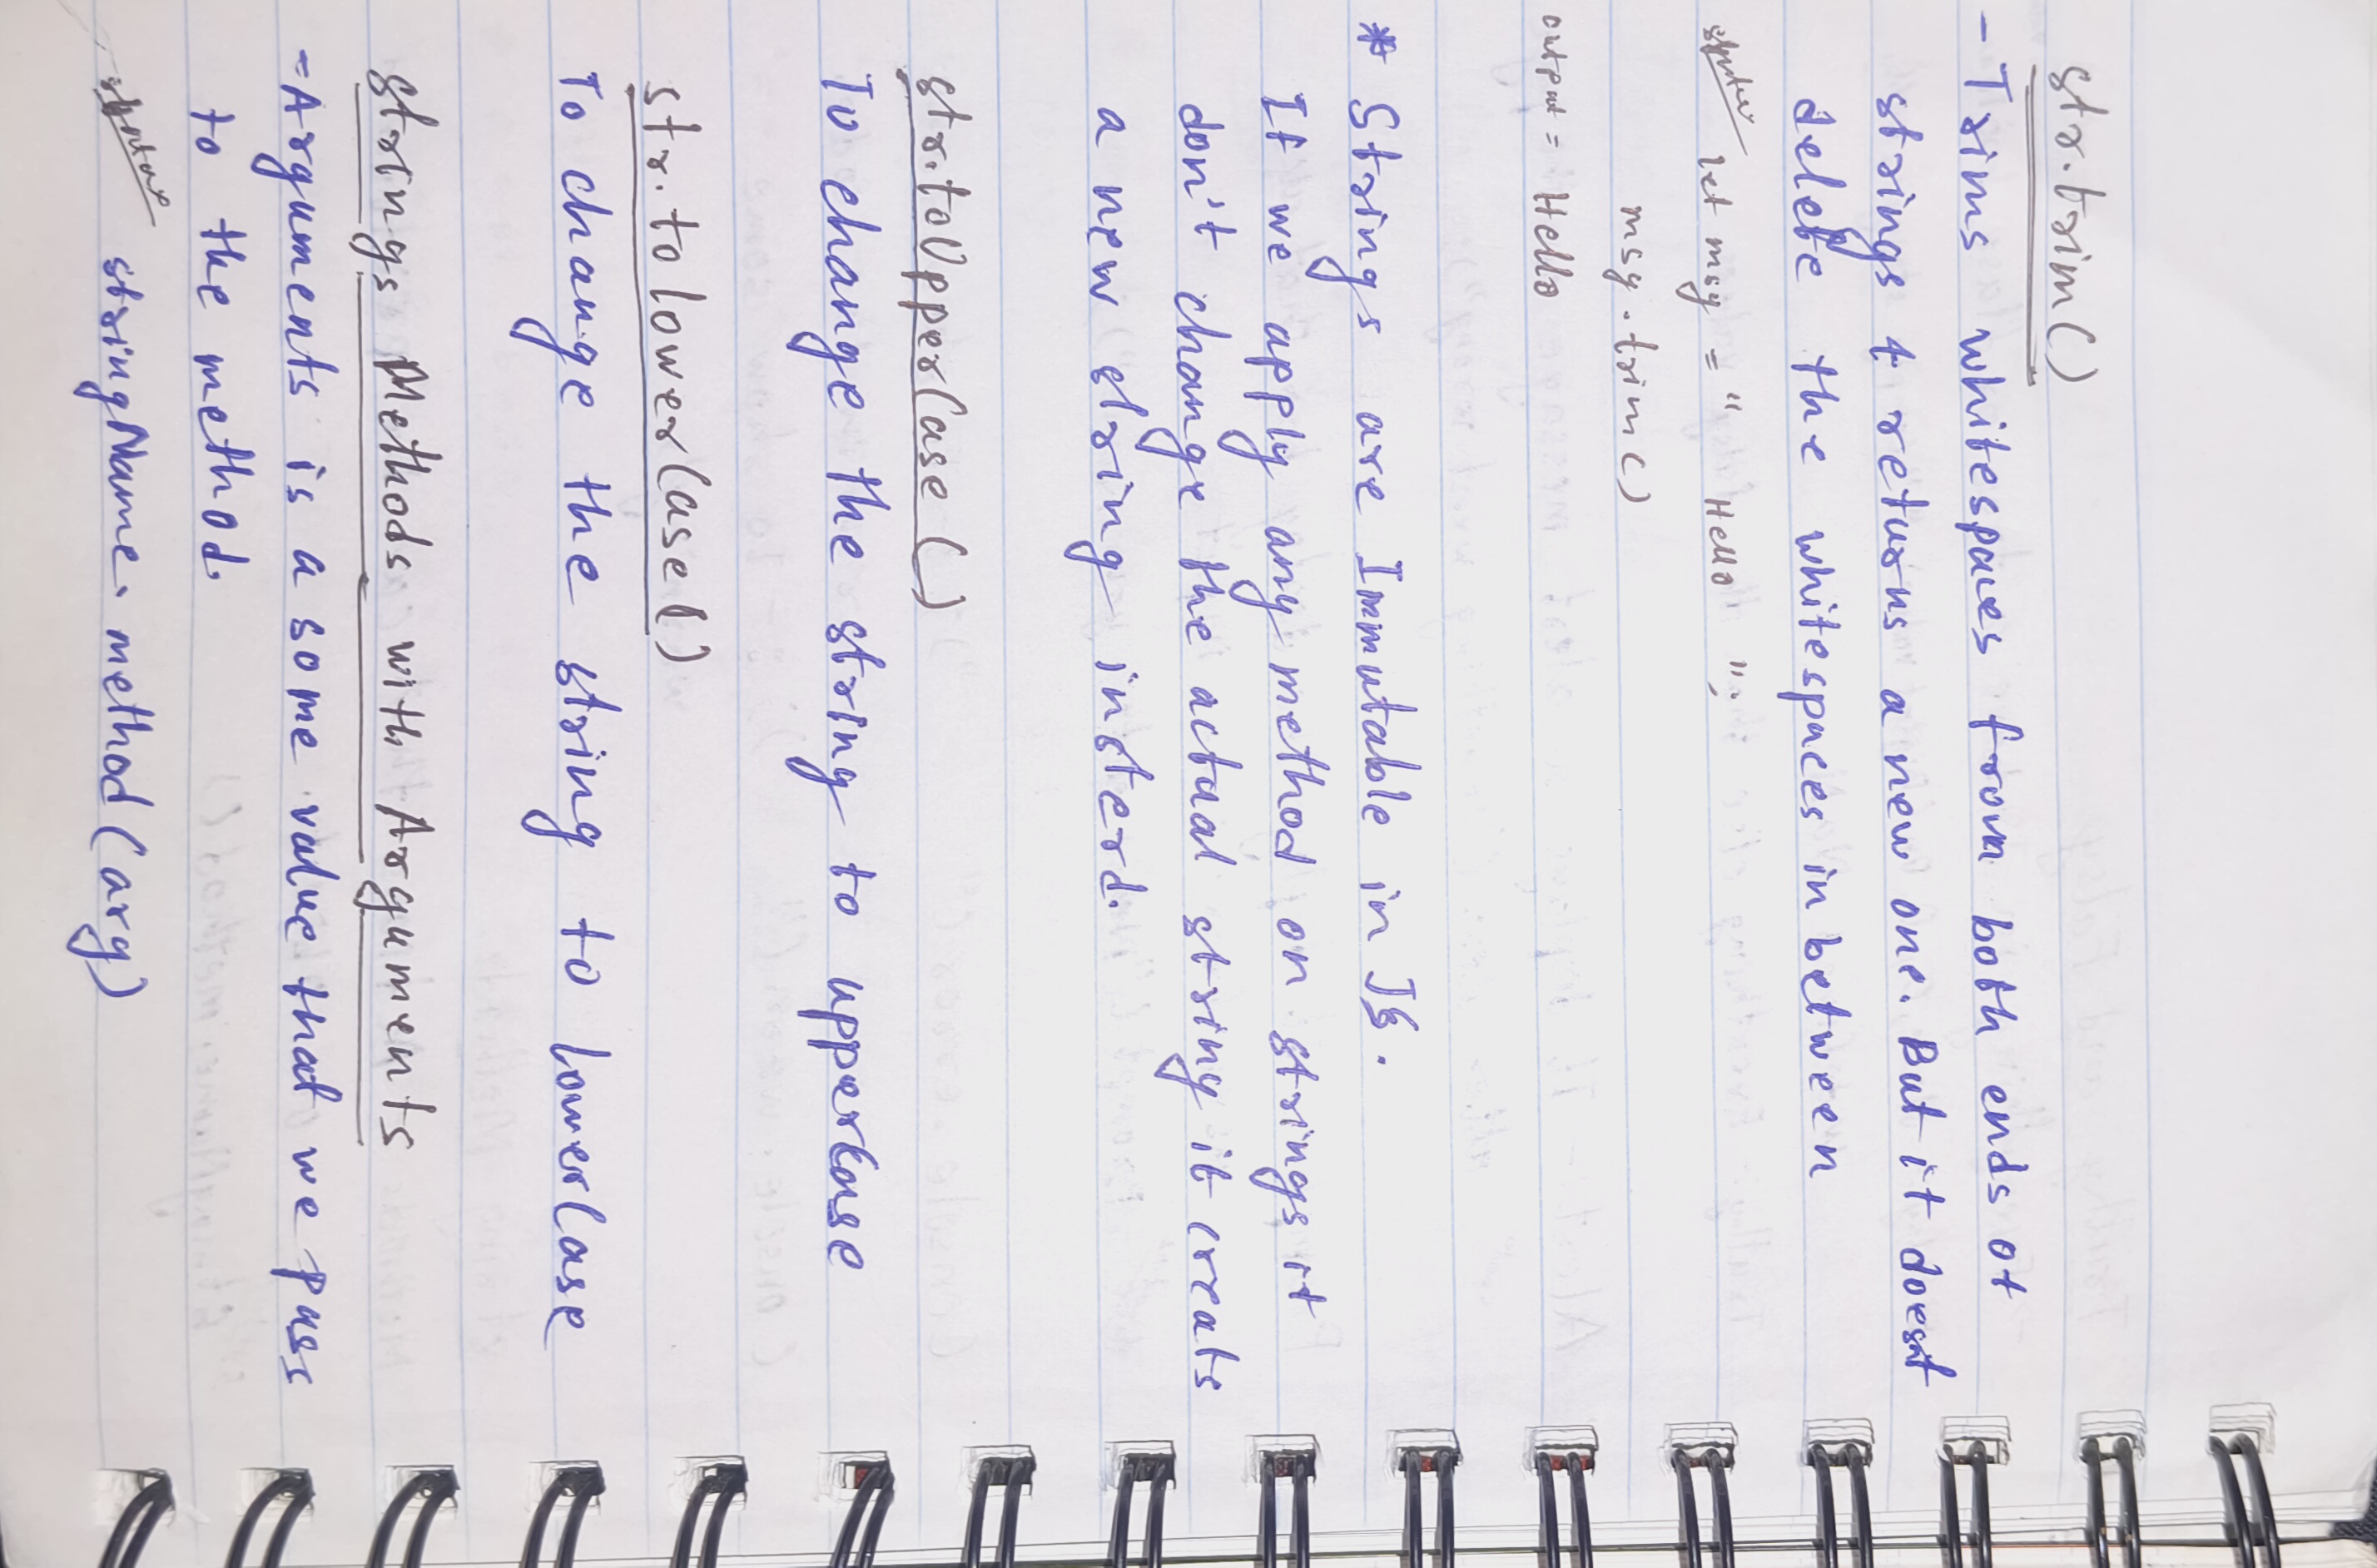 str.trim()
- Trims whitespaces from both ends of
strings & returns a new one. But it doesn't
delete the whitespaces in between
syntax let msg = " Hello ";
msg.trim()
output = Hello
* Strings are Immutable in JS.
If we apply any method on strings it
don't change the actual string it creats
a new string insterd.
str.toUpperCase()
To change the string to uppercase
str.tolowerCase()
To change the string to lowerCase
strings Methods with Arguments
- Arguments is a some value that we pass
to the method.
syntax stringName.method(arg)